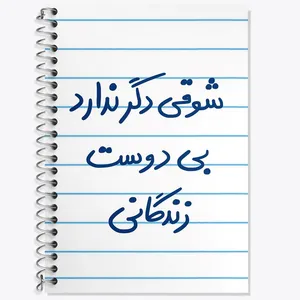 شوقی دگر ندارد
بی دوست
زندگانی